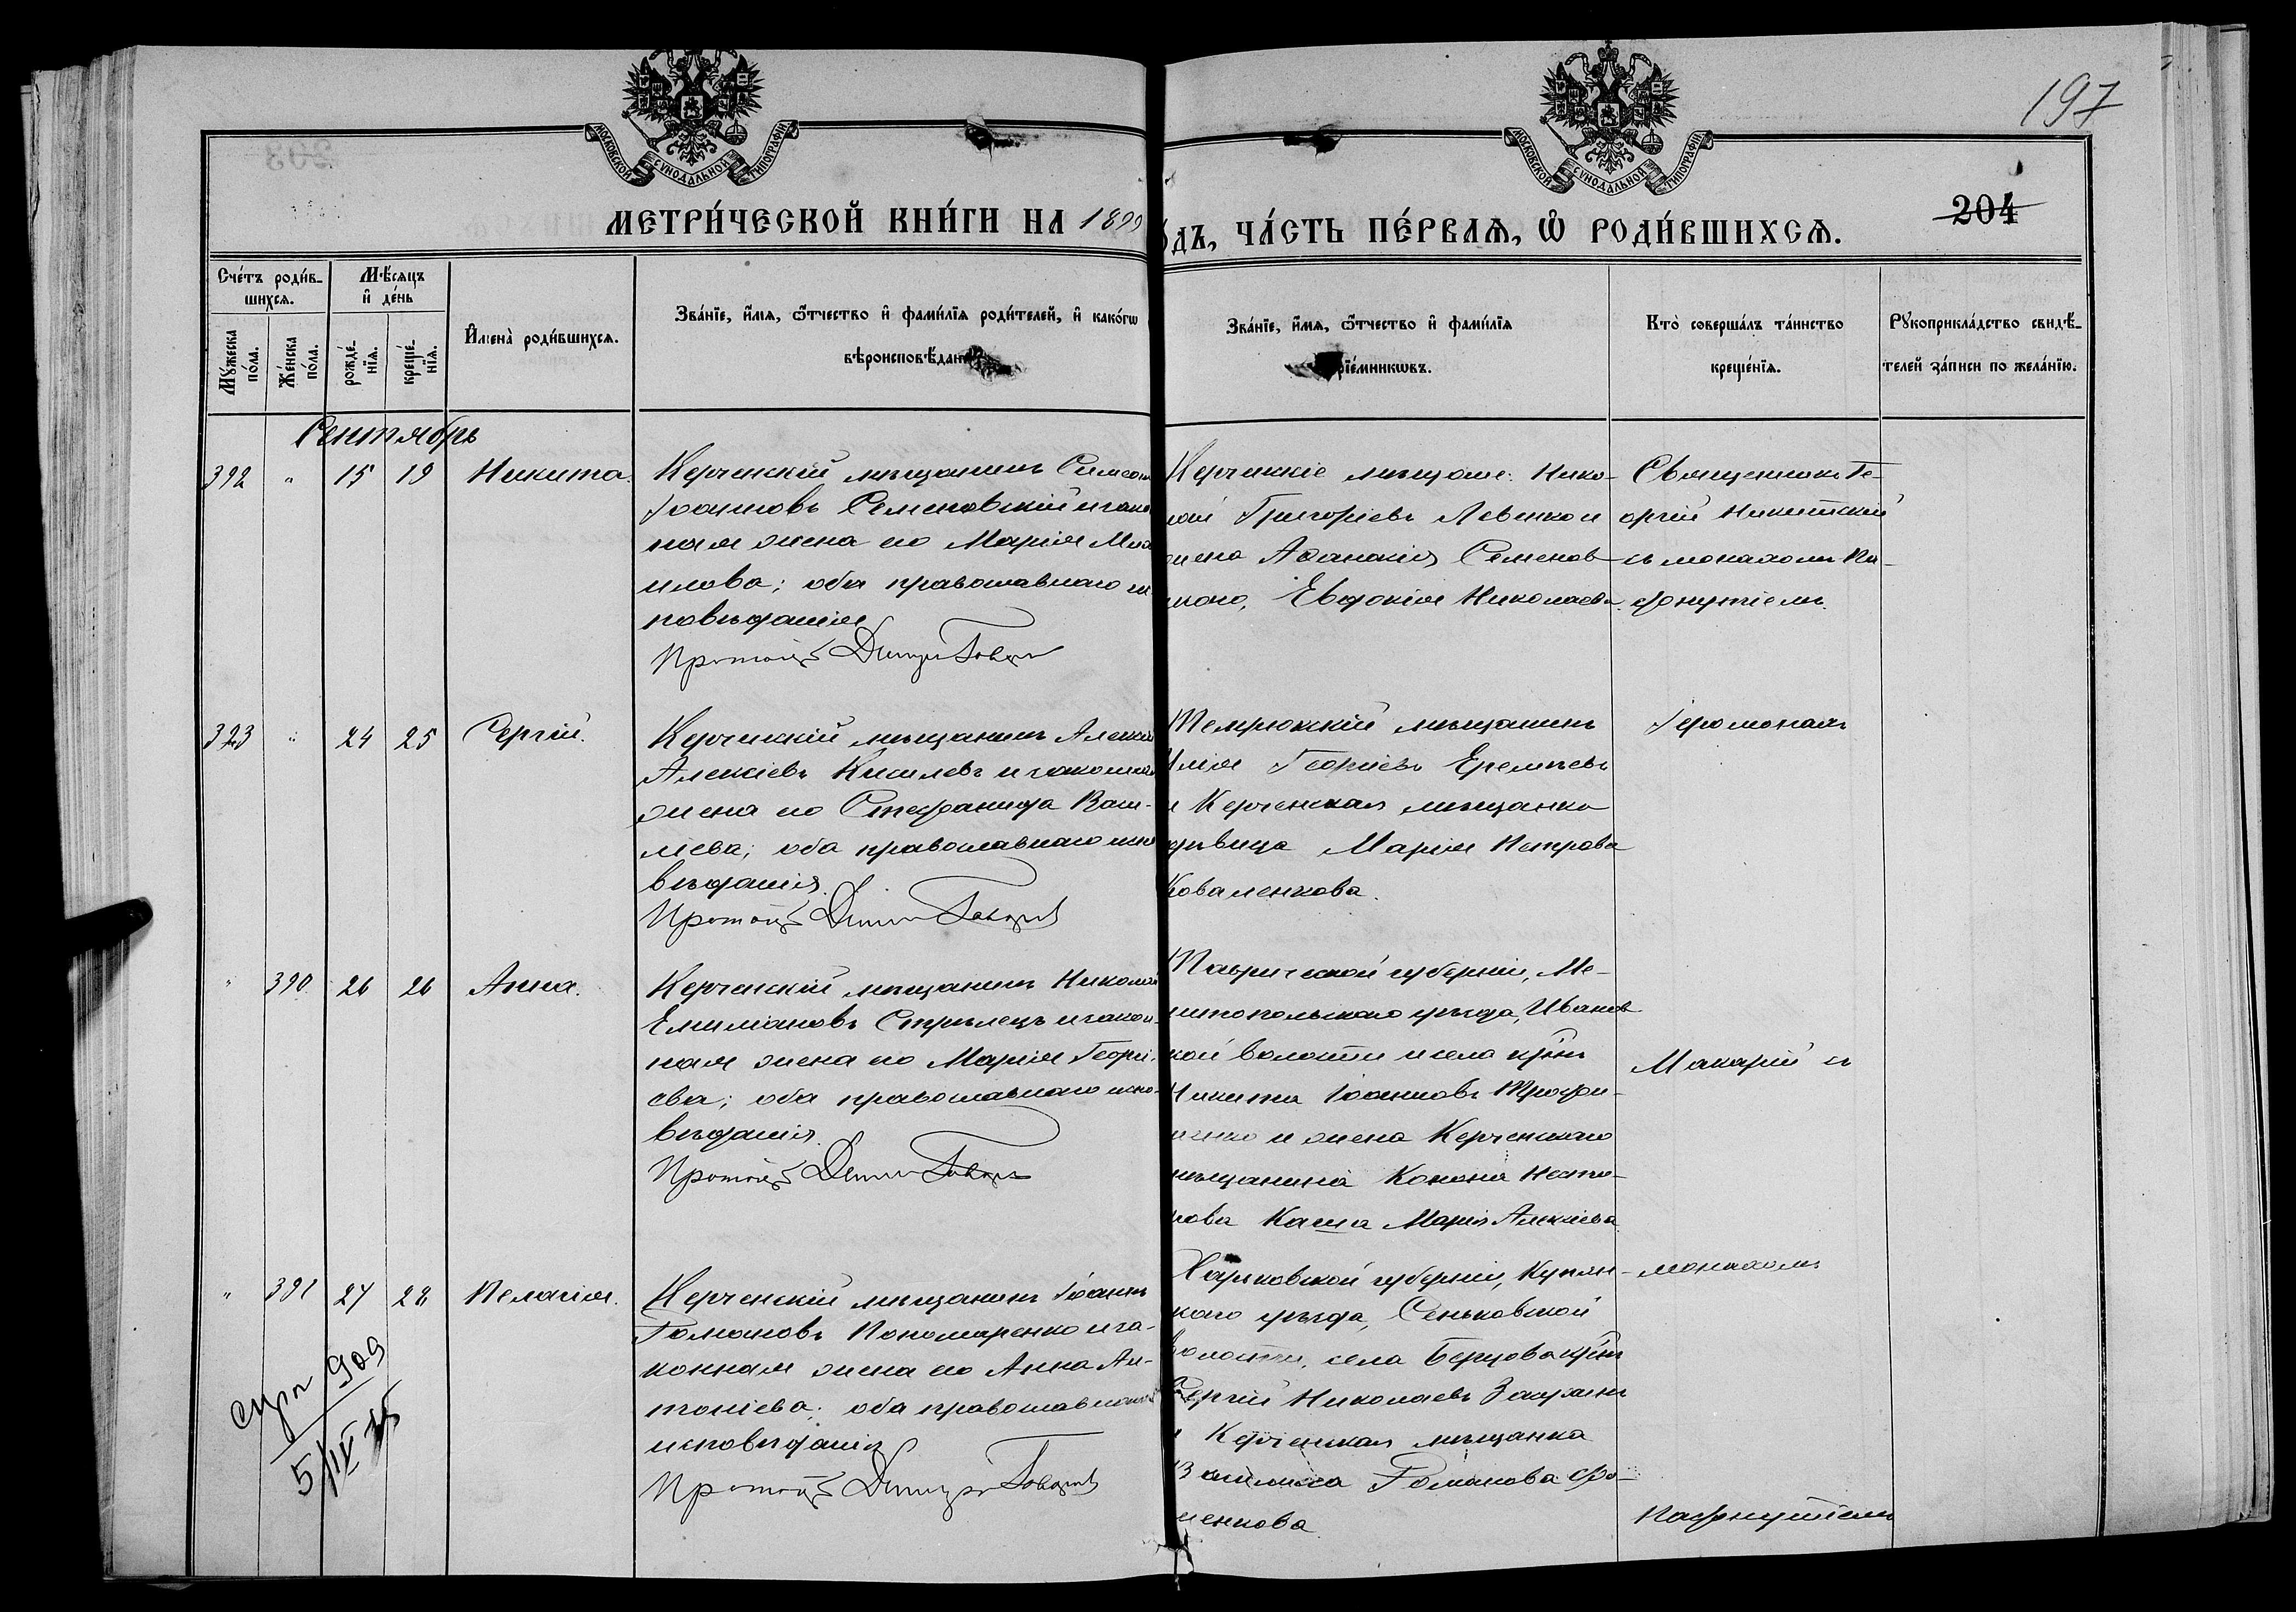 197
МОСКОВСКОЙ СУНОДАЛЬНОЙ ТИПОГРАФІИ
МОСКОВСКОЙ СУНОДАЛЬНОЙ ТИПОГРАФІИ
204
МЕТРИ́ЧЕСКОЙ КНИ́ГИ НА 1899
ОДЪ, ЧА́СТЬ ПЕ́РВАѦ, Ѡ РОДИ́ВШИХСѦ.
Сче́тъ роди́в-
шихсѧ.
Мѣ́сѧцъ
и де́нь
Мꙋ́жеска по́ла.
Же́нска по́ла.
рожде́-нїѧ.
креще́-нїѧ.
Имена̀ роди́вшихсѧ.
Зва́нїе, и́мѧ, ѻ́тчество и фами́лїѧ роди́телей, и како́гѡ
вѣроисповѣ́данїѧ.
Зва́нїе, и́мѧ, ѻ́тчество и фами́лїѧ
рїе́мникѡвъ.
Кто̀ соверша́лъ та́инство
креще́нїѧ.
Рꙋкоприкла́дство свидѣ́-
телей за́писи по жела́нїю.
Сентябрь
392 " 15 19 Никита.
Керченскій мѣщанинъ Симеонъ
Іоанновъ Семеновскій и закон
ная жена его Марія Миха
илова; оба православнаго ис
повѣданія
Протоіер Димитр
Керченскіе мѣщане: Нико-
лай Григоріевъ Левенко и
жена Аѳанасія Семенов
скаго, Евдокія Николаева.
Священникъ Ге-
оргій Никитскій
съ монахомъ Па-
фнутіемъ.
323 " 24 25 Сергій.
Керченскій мѣщанинъ Алексій
Алексіевъ Киселевъ и законная
жена его Стефанида Васи-
ліева; оба православнаго испо
вѣданія.
Протоіер Димит
Темрюкскій мѣщанинъ
Илія Георгіевъ Еремѣевъ
и Керченская мѣщанка
дѣвица Марія Петрова
Коваленкова.
Іеромонахъ
" 390 26 26 Анна.
Керченскій мѣщанинъ Николай
Емиліановъ Стрѣлецъ и закон-
ная жена его Марія Георгі-
ева; оба православнаго испо-
вѣданія.
Протоіер Димит
Таврической губерніи, Ме-
литопольскаго уѣзда, Иванов
ской волости и села кр-нъ
Никита Іоанновъ Трофи-
менко и жена Керченскаго
мѣщанина Конона Несте-
рова Каша Марія Алексіева
Макарій съ
" 391 27 28 Пелагія.
Керченскій мѣщанинъ Іоаннъ
Романовъ Пономаренко и за-
конная жена его Анна Ан-
тоніева; оба православнаго
исповѣданія
Протоіер Димитр
Харьковской губерніи, Купян-
скаго уѣзда, Сеньковской
волости, села кр-нъ
Сергій Николаевъ
и Керченская мѣщанка
Василиса Романова Фо-
менкова.
монахомъ
Пафнутіемъ
909
5/IV